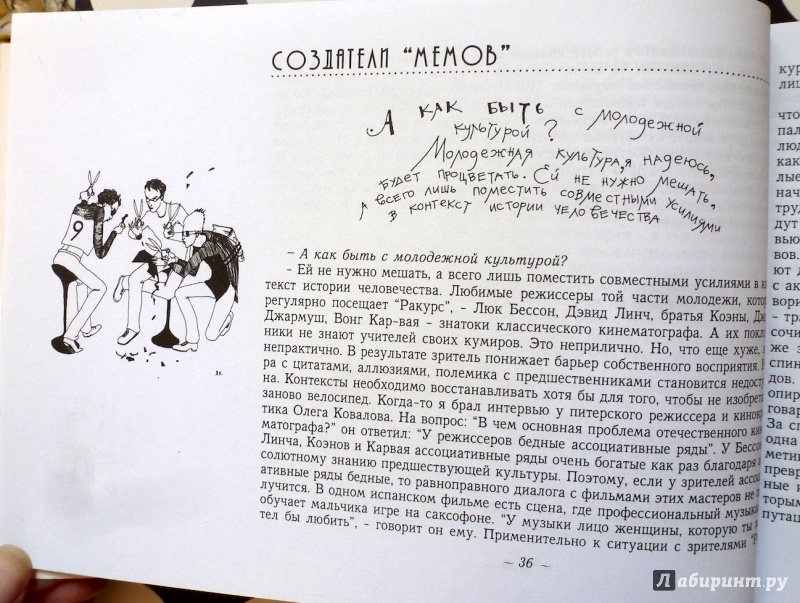 СОЗДАТЕЛИ "МЕМОВ"
А КАК БЫТЬ С МОЛОДЕЖНОЙ
КУЛЬТУРОЙ?
МОЛОДЕЖНАЯ КУЛЬТУРА, Я НАДЕЮСЬ,
БУДЕТ ПРОЦВЕТАТЬ. ЕЙ НЕ НУЖНО МЕШАТЬ,
А ВСЕГО ЛИШЬ ПОМЕСТИТЬ СОВМЕСТНЫМИ УСИЛИЯМИ
В КОНТЕКСТ ИСТОРИИ ЧЕЛОВЕЧЕСТВА
9
– А как быть с молодежной культурой?
– Ей не нужно мешать, а всего лишь поместить совместными усилиями в
текст истории человечества. Любимые режиссеры той части молодежи,
регулярно посещает "Ракурс", - Люк Бессон, Дэвид Линч, братья Коэны,
Джармуш, Вонг Кар-вая – знатоки классического кинематографа. А их
ники не знают учителей своих кумиров. Это неприлично. Но, что еще хуже,
непрактично. В результате зритель понижает барьер собственного восприятия.
ра с цитатами, аллюзиями, полемика с предшественниками становится
на. Контексты необходимо восстанавливать хотя бы для того, чтобы не
заново велосипед. Когда-то я брал интервью у питерского режиссера и
тика Олега Ковалова. На вопрос: "В чем основная проблема отечественного
матографа?" он ответил: "У режиссеров бедные ассоциативные ряды". У
Линча, Коэнов и Карвая ассоциативные ряды очень богатые как раз благодаря
солютному знанию предшествующей культуры. Поэтому, если у зрителей
ативные ряды бедные, то равноправного диалога с фильмами этих мастеров не
лучится. В одном испанском фильме есть сцена, где профессиональный
обучает мальчика игре на саксофоне. "У музыки лицо женщины, которую ты
тел бы любить", - говорит он ему. Применительно к ситуации с зрителями
~ 36 ~
Лабиринт.ру